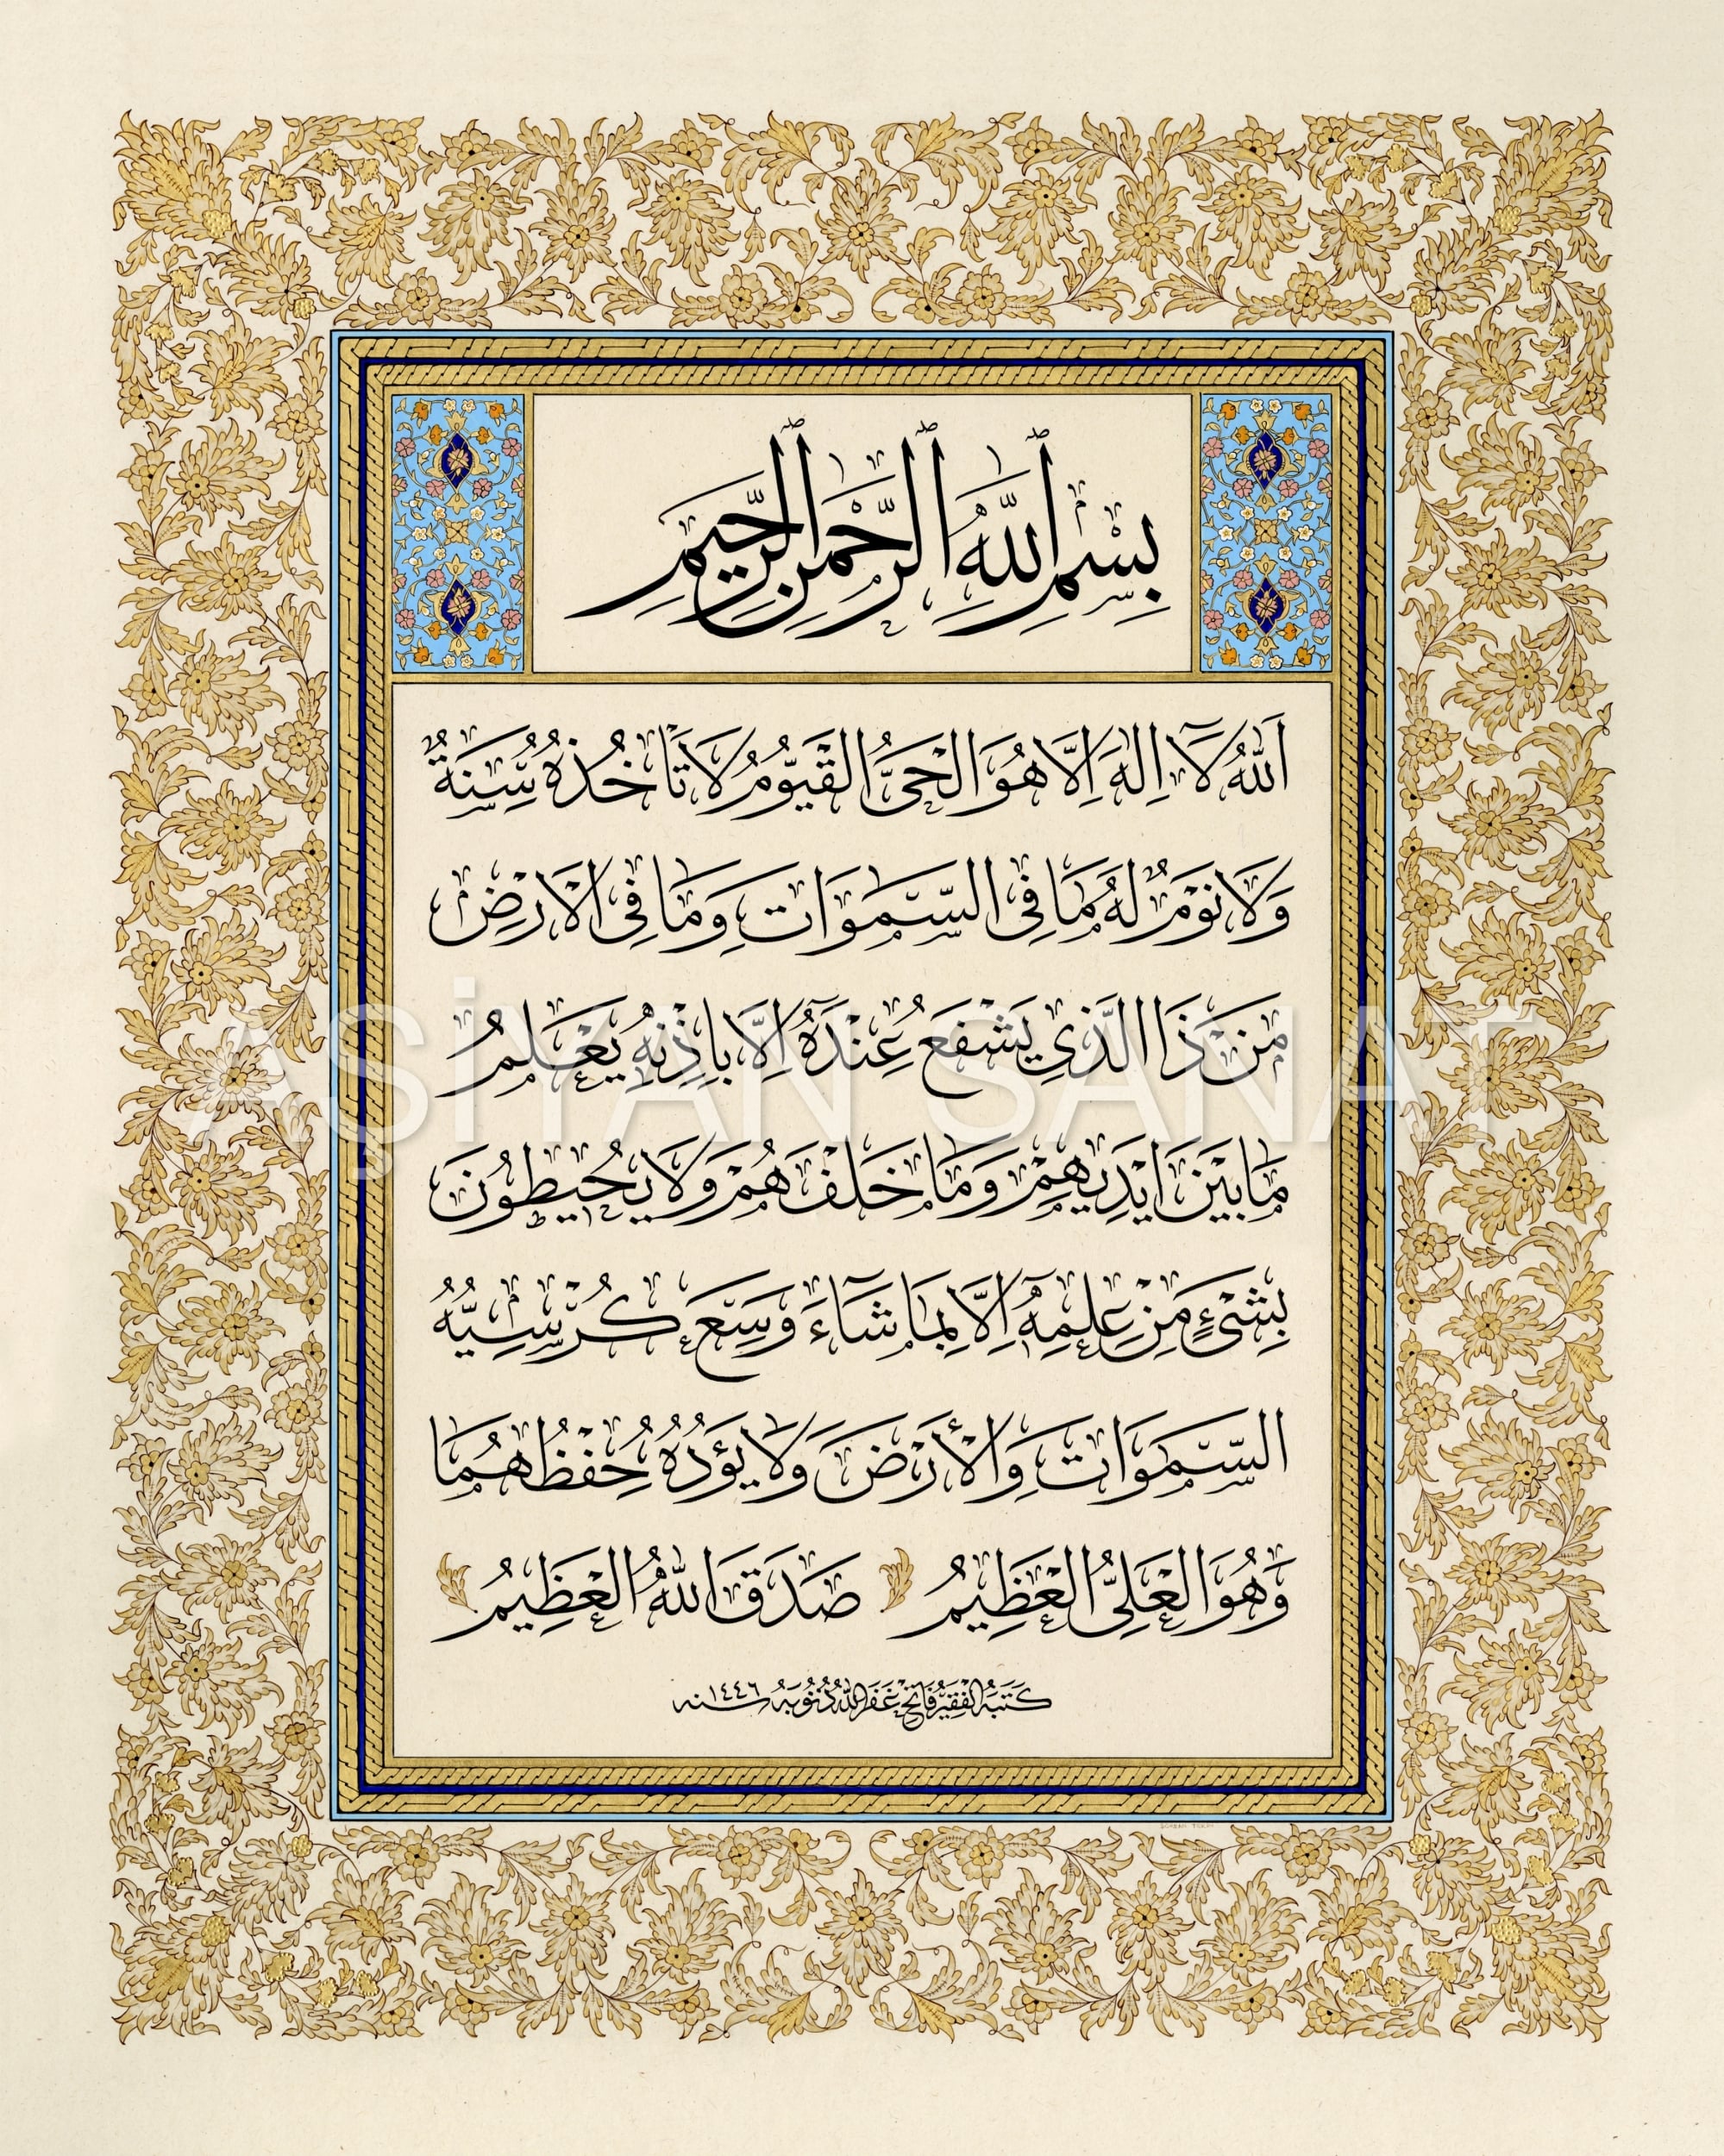 بِسْمِ اللّٰهِ الرَّحْمٰنِ الرَّحِيمِ
اَللّٰهُ لَآ اِلٰهَ اِلَّا هُوَ الْحَىُّ الْقَيُّومُ لَا تَاْخُذُهُ سِنَةٌ
وَلَا نَوْمٌ لَهُ مَا فِى السَّمٰوَاتِ وَمَا فِى الْاَرْضِ
مَنْ ذَا الَّذِى يَشْفَعُ عِنْدَهُ اِلَّا بِاِذْنِهِ يَعْلَمُ
مَا بَيْنَ اَيْدِيهِمْ وَمَا خَلْفَهُمْ وَلَا يُحِيطُونَ
بِشَىْءٍ مِنْ عِلْمِهِ اِلَّا بِمَا شَآءَ وَسِعَ كُرْسِيُّهُ
السَّمٰوَاتِ وَالْأَرْضَ وَلَا يَؤُدُهُ حِفْظُهُمَا
وَهُوَ الْعَلِىُّ الْعَظِيمُ صَدَقَ اللّٰهُ الْعَظِيمُ
كَتَبَهُ الْفَقِيرُ فَاتِحْ غَفَرَ اللّٰهُ ذُنُوبَهُ سنه ١٤٤٦
AŞİYAN SANAT